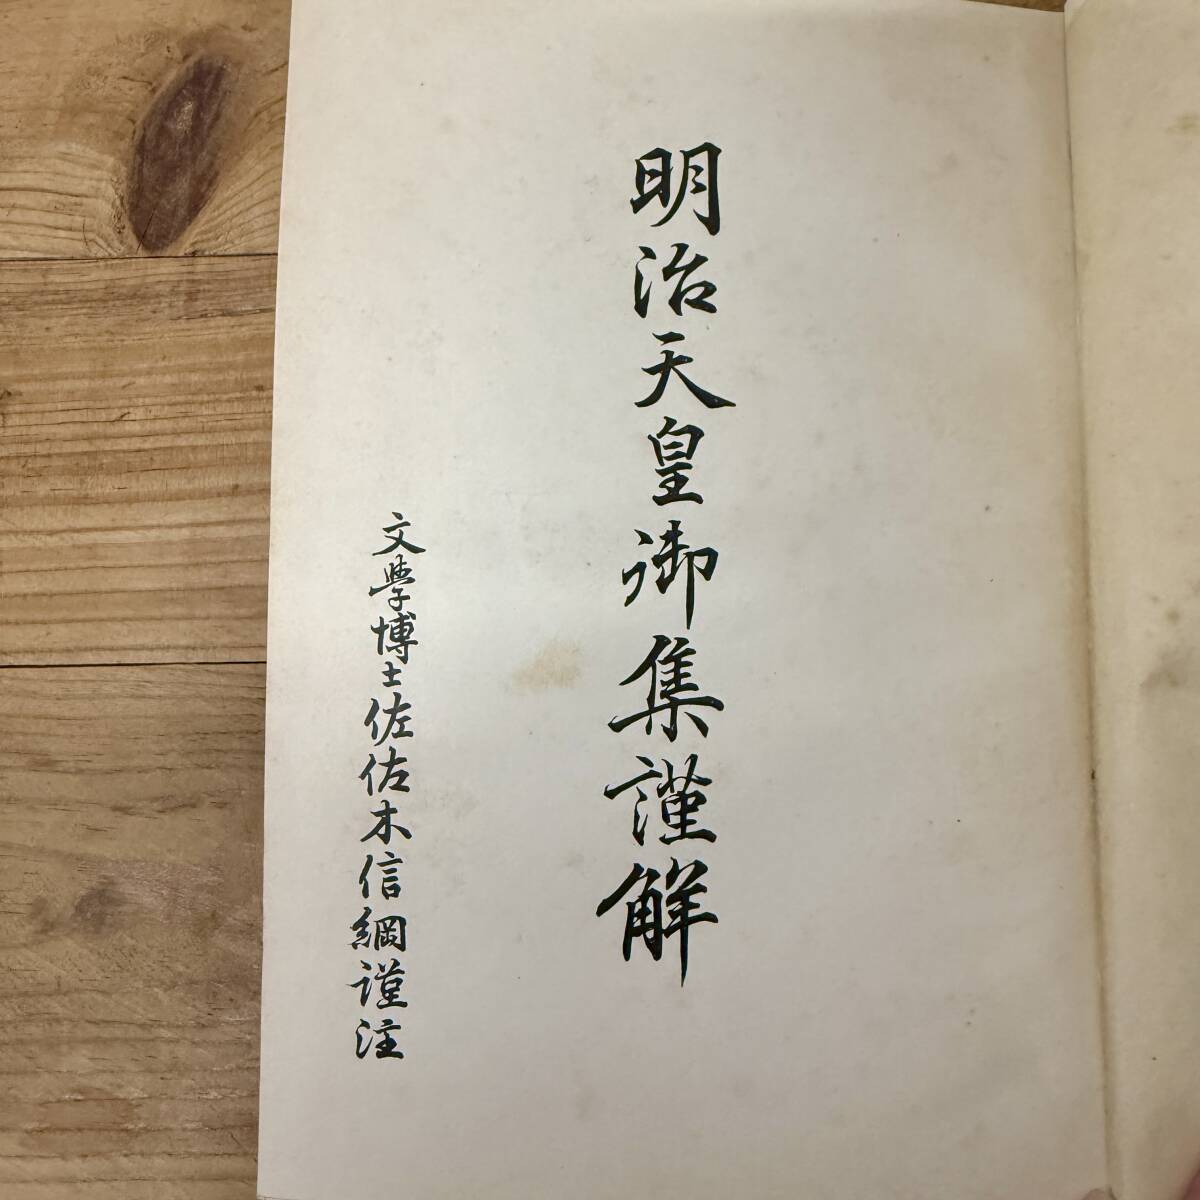 明治天皇御集謹解
文學博士佐佑木信綱謹注